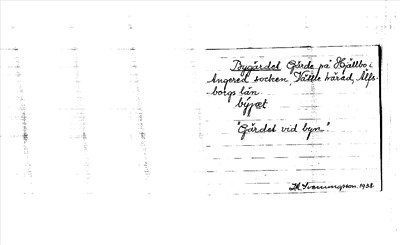 Bygärdet Gärde på Hjällbo i
Angered socken, Vättle härad, Älfs-
borgs län.
býjæt
"Gärdet vid byn"
Sveningsson. 1938